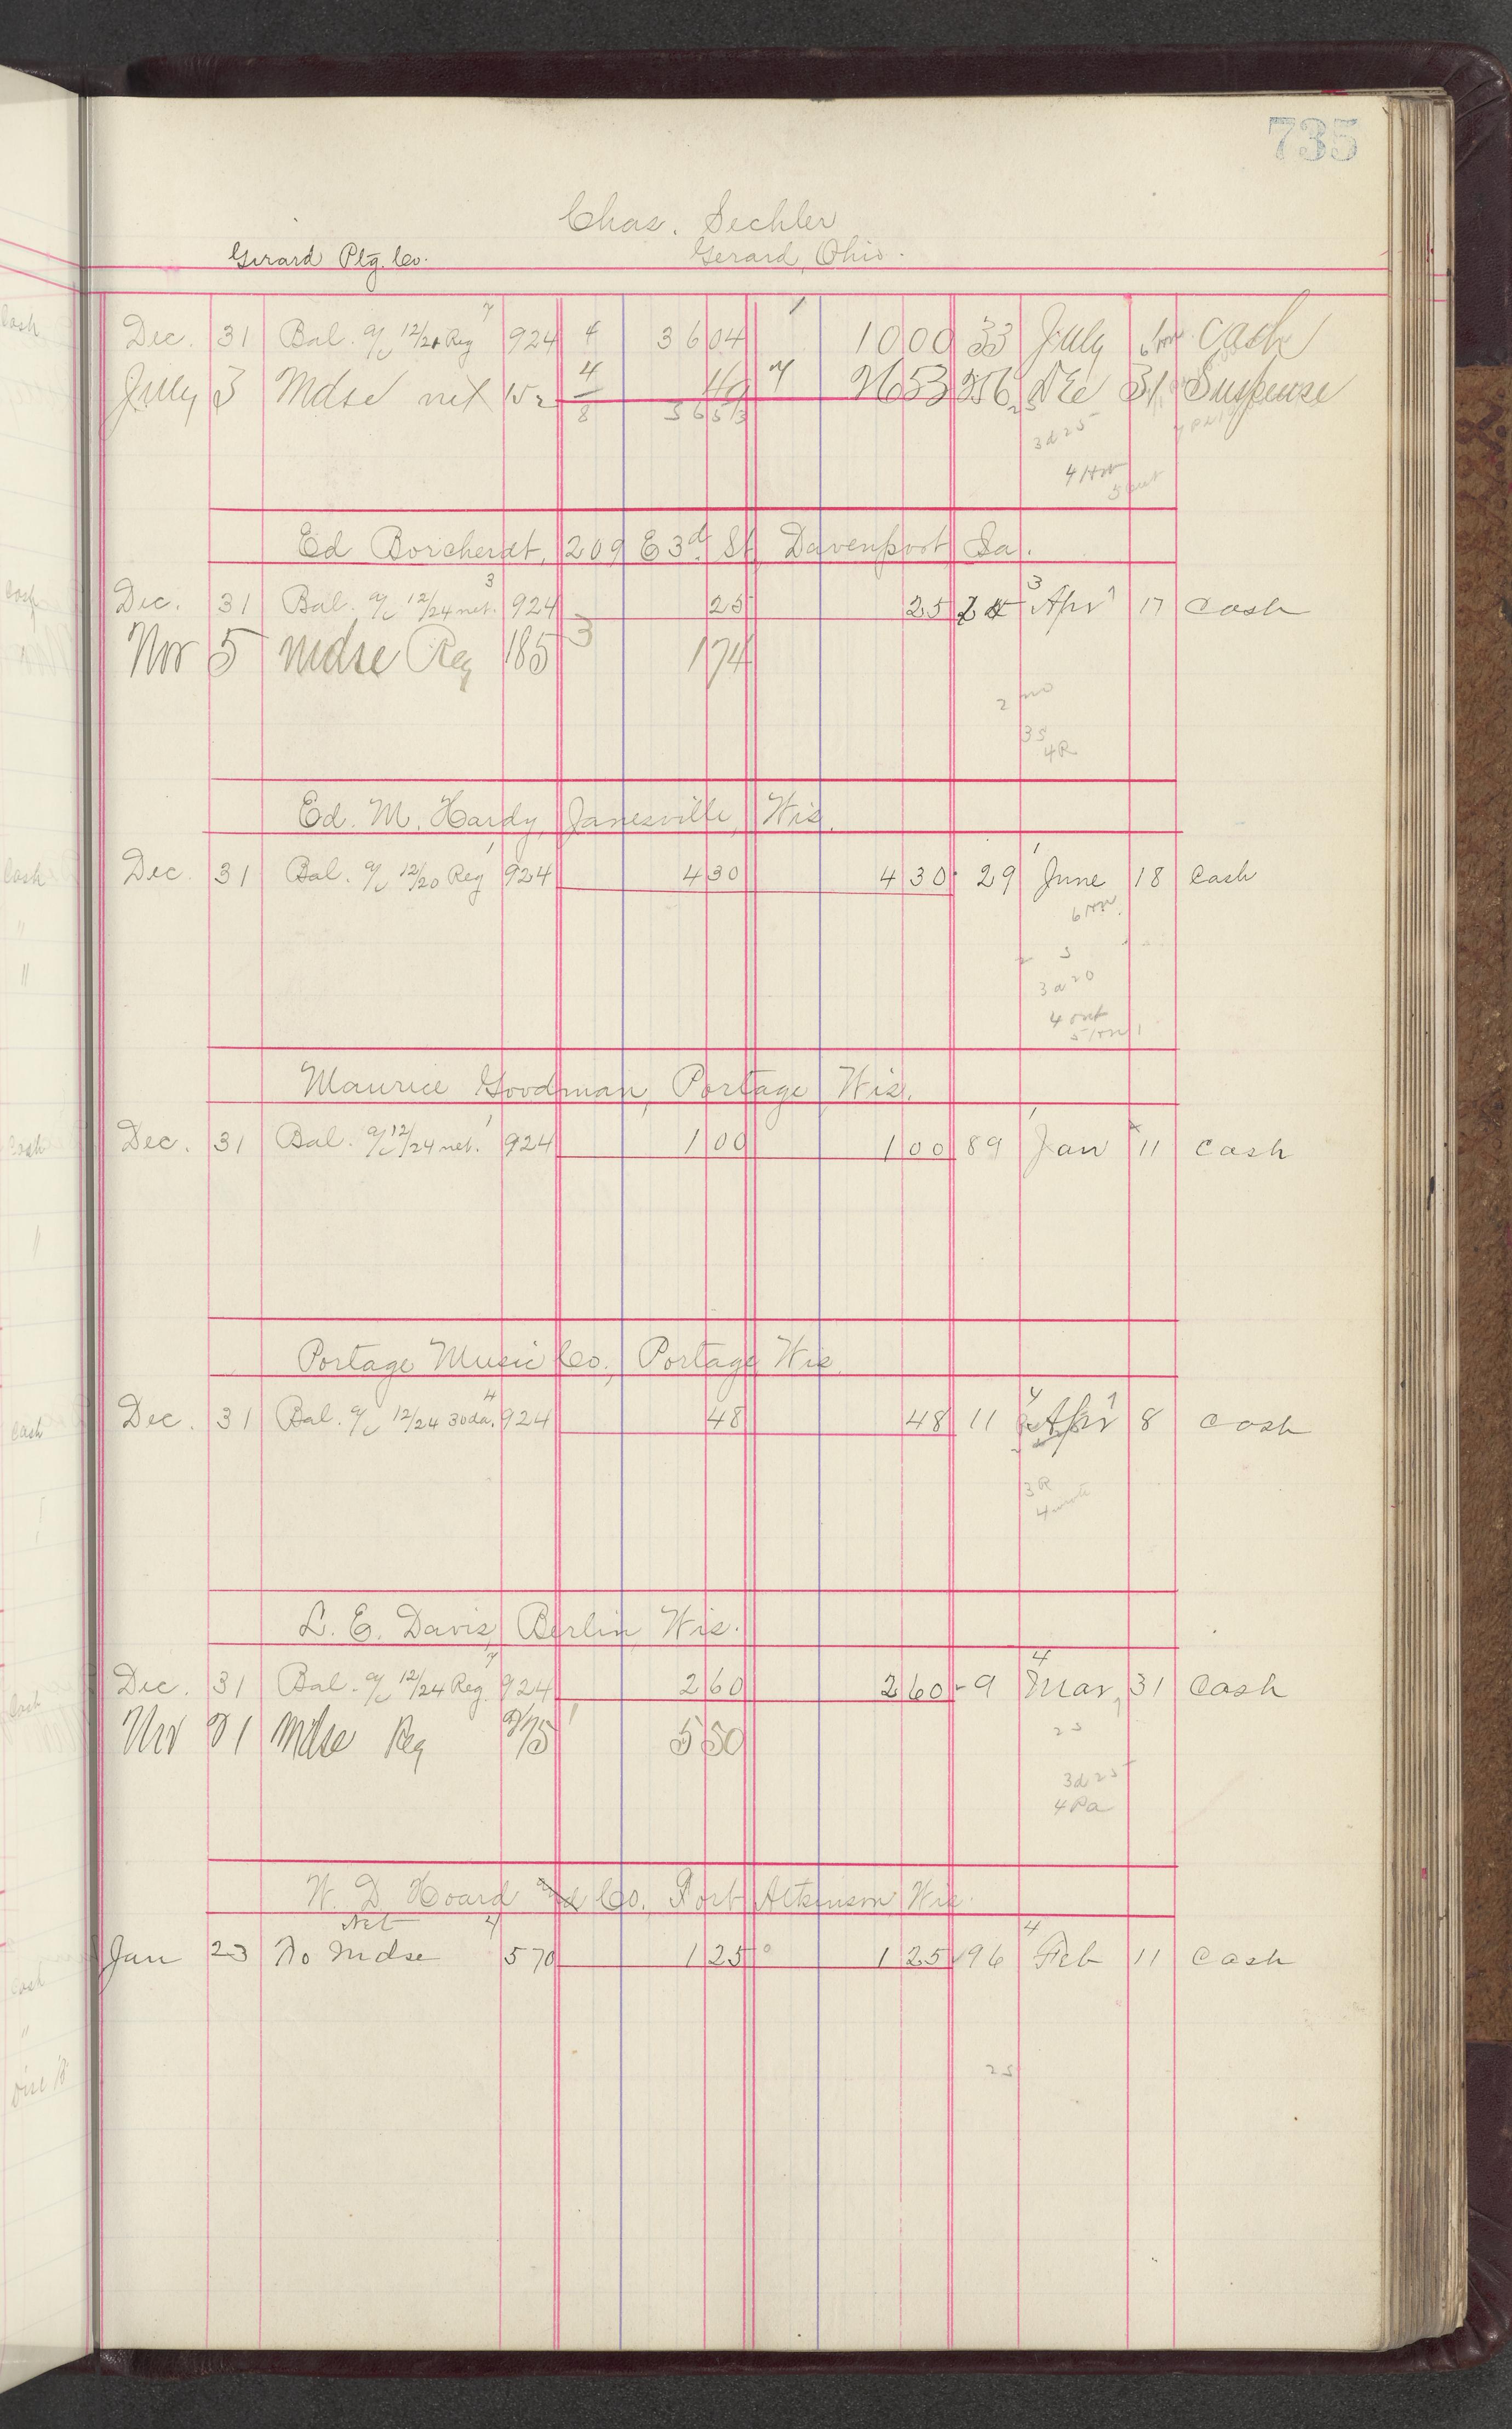 735
Chas. Sechler
Girard Ptg. Co. Gerard, Ohio.
Dec. 31 Bal. a/c 12/20 Reg 7 924 4 36 04 1 10 00 33 July 6 Cash
July 3 Mdse net 152 4 49 7 26 53 256 Dec 31 Suspense
8 36 53
3d 25
4
Ed Borcherdt, 209 E 3d St, Davenport, Ia.
Dec. 31 Bal. a/c 12/24 net. 3 924 25 25 3 Apr 17 Cash
Nov 5 Mdse Reg 185 3 1 74
2
35
4R
Ed. M. Hardy, Janesville, Wis.
Dec 31 Bal. a/c 12/20 Reg 1 924 4 30 4 30 29 1 June 18 Cash
3
3d 20
4
Maurice Goodman, Portage, Wis.
Dec. 31 Bal. a/c 12/24 net. 1 924 1 00 1 00 89 1 Jan 11 Cash
Portage Music Co., Portage Wis
Dec. 31 Bal. a/c 12/24 30 da. 4 924 48 48 11 4 Apr 8 Cash
3R
4 wrote
L. E. Davis, Berlin, Wis.
Dec. 31 Bal. a/c 12/24 Reg. 7 924 2 60 2 60 9 4 Mar, 31 Cash
Nov 21 Mdse Reg 275 1 5 50
25
3d 25
4 Pa
W. D. Hoard Co. Fort Atkinson Wis.
Net
Jan 23 To Mdse 4 570 1 25 1 25 96 4 Feb 11 Cash
25